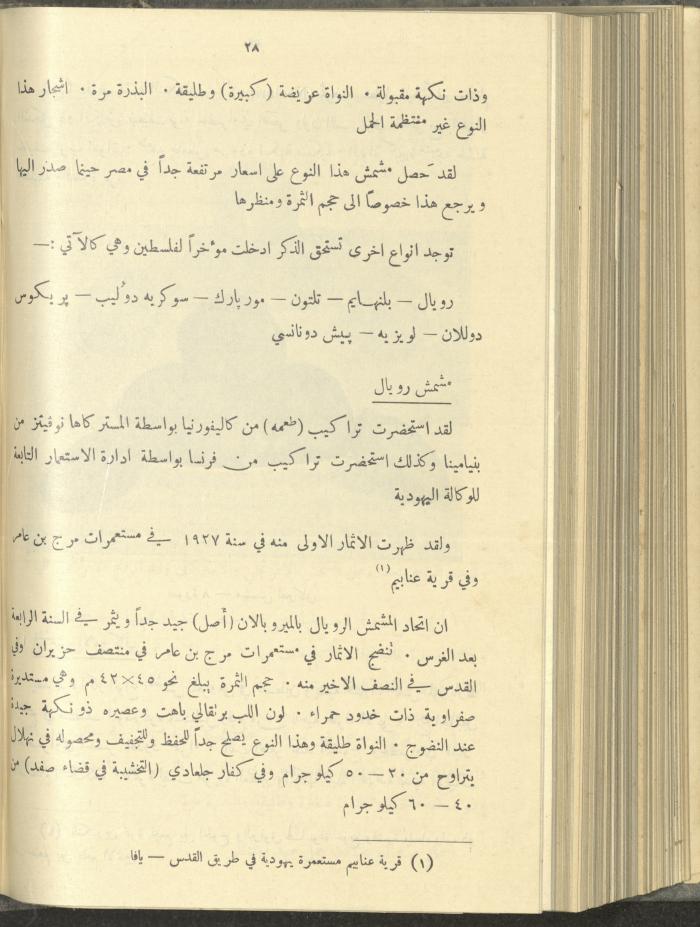 ٢٨
وذات نكهة مقبولة ٠ النواة عريضة ( كبيرة ) وطليقة ٠ البذرة مرة ٠ اشجار هذا
النوع غير منتظمة الحمل
لقد حصل مشمش هذا النوع على اسعار مرتفعة جداً في مصر حينما صدر اليها
ويرجع هذا خصوصاً الى حجم الثمرة ومنظرها
توجد انواع اخرى تستحق الذكر ادخلت مؤخراً لفلسطين وهي كالآتي :—
رويال — بلنهايم — تلتون — مور پارك — سوكريه دوليب — پريكوس
دوللان — لويزيه — پيش دونانسي
مشمش رويال
لقد استحضرت تراكيب (طعمه) من كاليفورنيا بواسطة المستر كاها نوڤيتز من
بنيامينا وكذلك استحضرت تراكيب من فرنسا بواسطة ادارة الاستعمار التابعة
للوكالة اليهودية
ولقد ظهرت الاثمار الاولى منه في سنة ١٩٢٧ في مستعمرات مرج بن عامر
وفي قرية عنابيم(١)
ان اتحاد المشمش الرويال بالميروبالان (أصل) جيد جداً ويثمر في السنة الرابعة
بعد الغرس ٠ تنضج الاثمار في مستعمرات مرج بن عامر في منتصف حزيران وفي
القدس في النصف الاخير منه ٠ حجم الثمرة يبلغ نحو ٤٥×٤٢ م وهي مستديرة
صفراوية ذات خدود حمراء ٠ لون اللب برتقالي باهت وعصيره ذو نكهة جيدة
عند النضوج ٠ النواة طليقة وهذا النوع يصلح جداً للحفظ وللتجفيف ومحصوله في نهلال
يتراوح من ٢٠ — ٥٠ كيلو جرام وفي كفار جلعادي (التخشيبة في قضاء صفد) من
٤٠ — ٦٠ كيلو جرام
(١) قرية عنابيم مستعمرة يهودية في طريق القدس — يافا